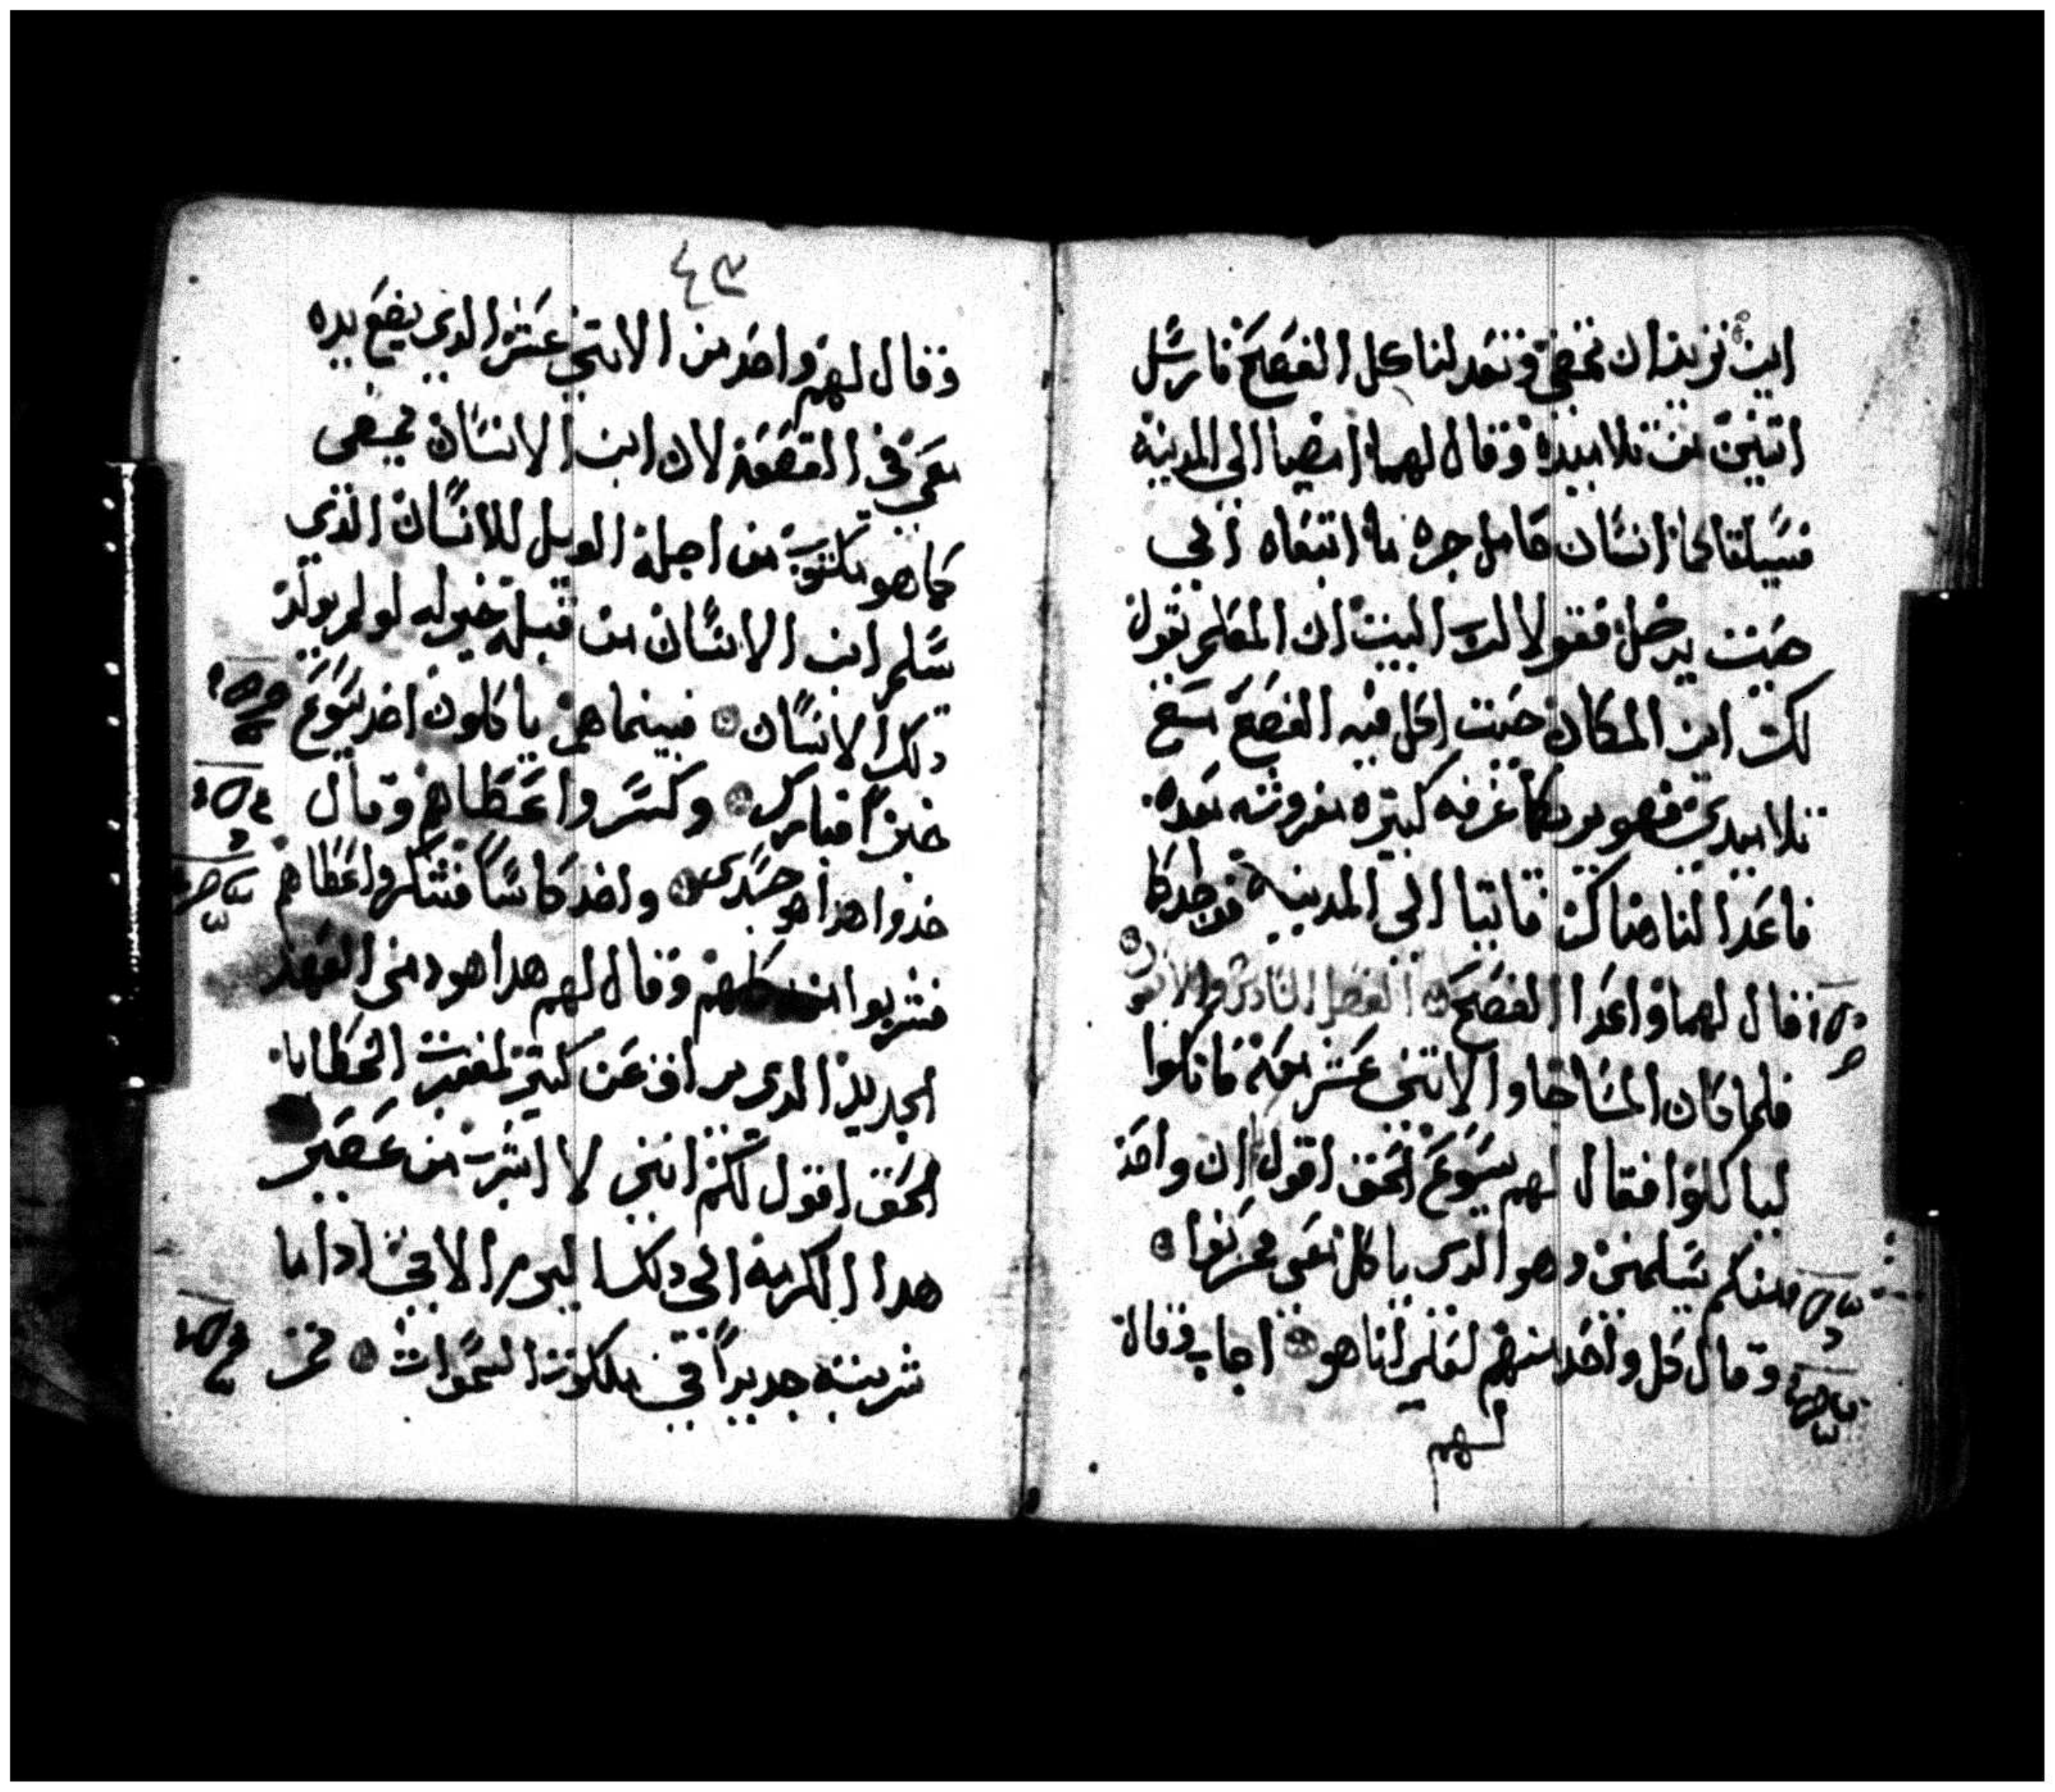 اين تريد ان نمضي ونعد لنا كل الفصح فارسل
اتنين من تلاميده وقال لهما امضيا الى المدينه
فسيلقاكما انسان حامل جره ما اتبعاه الي
حيت يدخل فقولا لرب البيت ان المعلم يقول
لك اين المكان حيت اكل فيه الفصح مع
تلاميدي فهو يريكما غرفه كبيره مفروشه معده
فاعدا لنا هناك فاتيا الي المدينه فوجدا كما
قال لهما واعدا الفصح الفصل
فلما كان المسا جا والاتني عشر معه فاتكوا
لياكلوا فقال لهم يسوع الحق اقول ان واحد
منكم يسلمني وهو الدي ياكل معي فحزنوا
وقال كل واحد منهم لعلي انا هو اجاب وقال
لهم
٤٣
وقال لهم واحد من الاتني عشر الدي يضع يده
معي في القصعه لان ابن الانسان يمضي
كما هو مكتوب من اجله الويل للانسان الذي
يسلم ابن الانسان من قبله خير له لو لم يولد
دلك الانسان فبينما هم ياكلون اخد يسوع
خبزاً فبارك وكسر واعطاهم وقال
خدوا هدا هو جسدي واخد كاساً فشكر واعطاهم
فشربوا منه كلهم وقال لهم هدا هو دمي العهد
الجديد الدي يراق عن كتير لمغفرت الخطايا
الحق اقول لكم انني لا اشرب من عصير
هدا الكرمه الي دلك اليوم الاتي ادا ما
شربته جديداً في ملكوت السموات